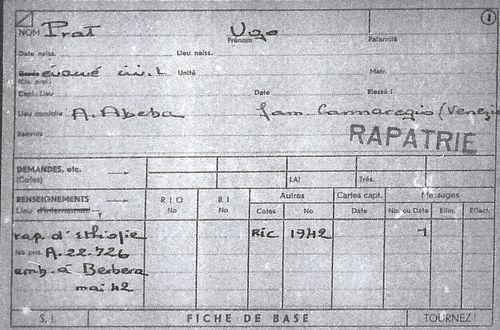 NOM Prat Ugo
Prénom Paternité
Date naiss. Lieu naiss.
évacué civil Unité Matr.
Capt.: Lieu Date Blessé :
Lieu domicile A. Abeba fam. Cannaregio (Venezia
Renvois
RAPATRIE
DEMANDES, etc.
(Cotes) LAI Trés.
RENSEIGNEMENTS RIO RI Autres Cartes capt. Messages
Lieu d'internement No No Cotes No Date No. ou Date Elim. Effect.
rap. d'Ethiopie RIC 1942 1
No pris. A.22.726
emb. à Berbera
mai 42
S. I. FICHE DE BASE TOURNEZ !